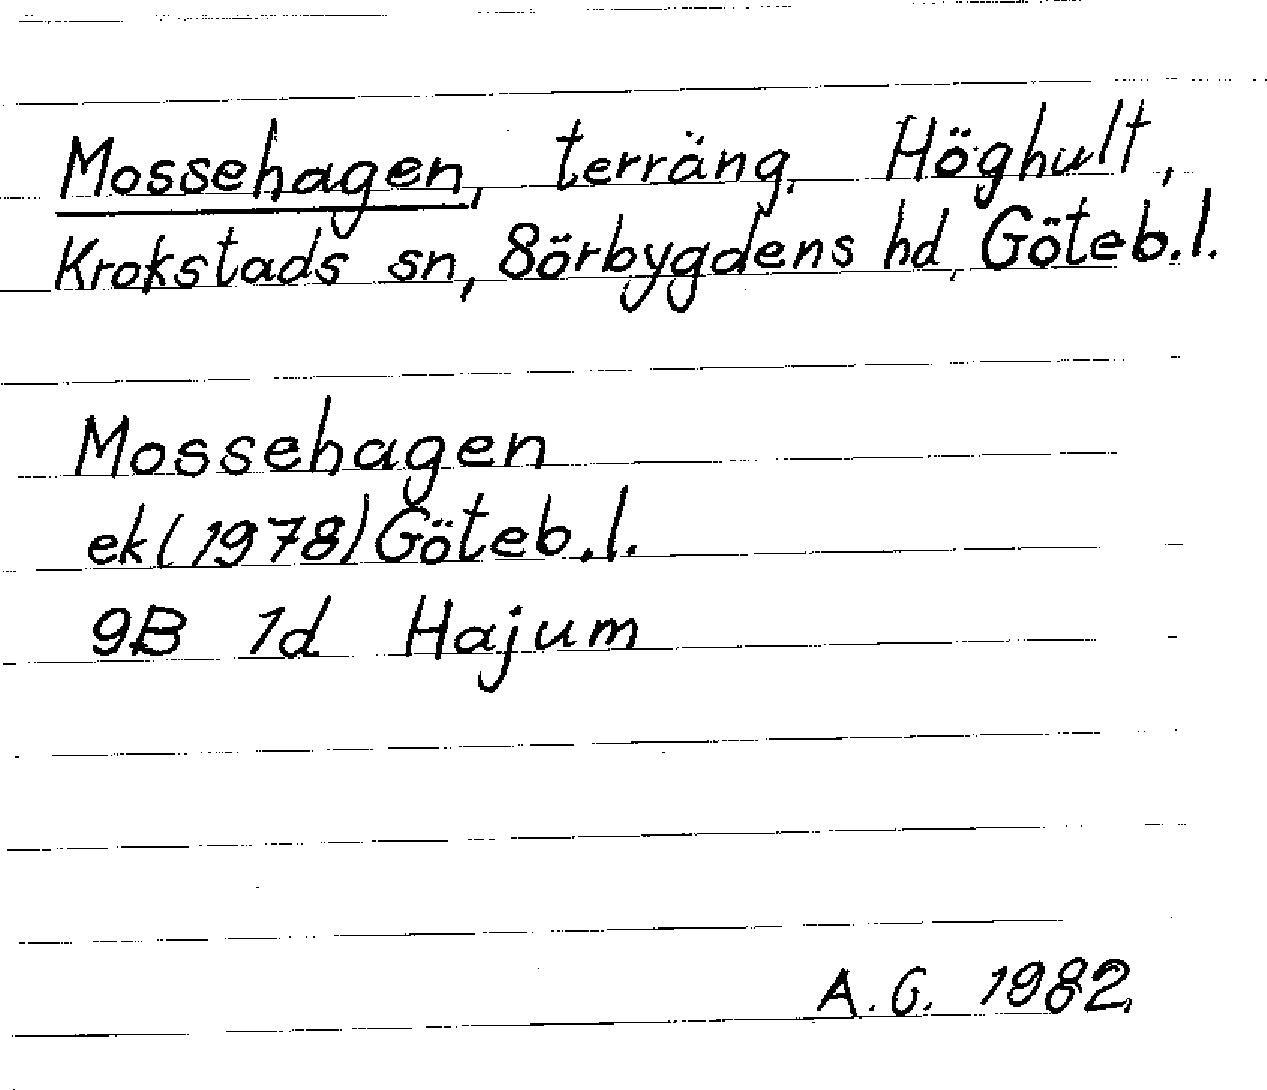 Mossehagen, terräng, Höghult,
Krokstads sn, Sörbygdens hd, Göteb.l.
Mossehagen
ek(1978)Göteb.l.
9B 1d Hajum
A.G. 1982.